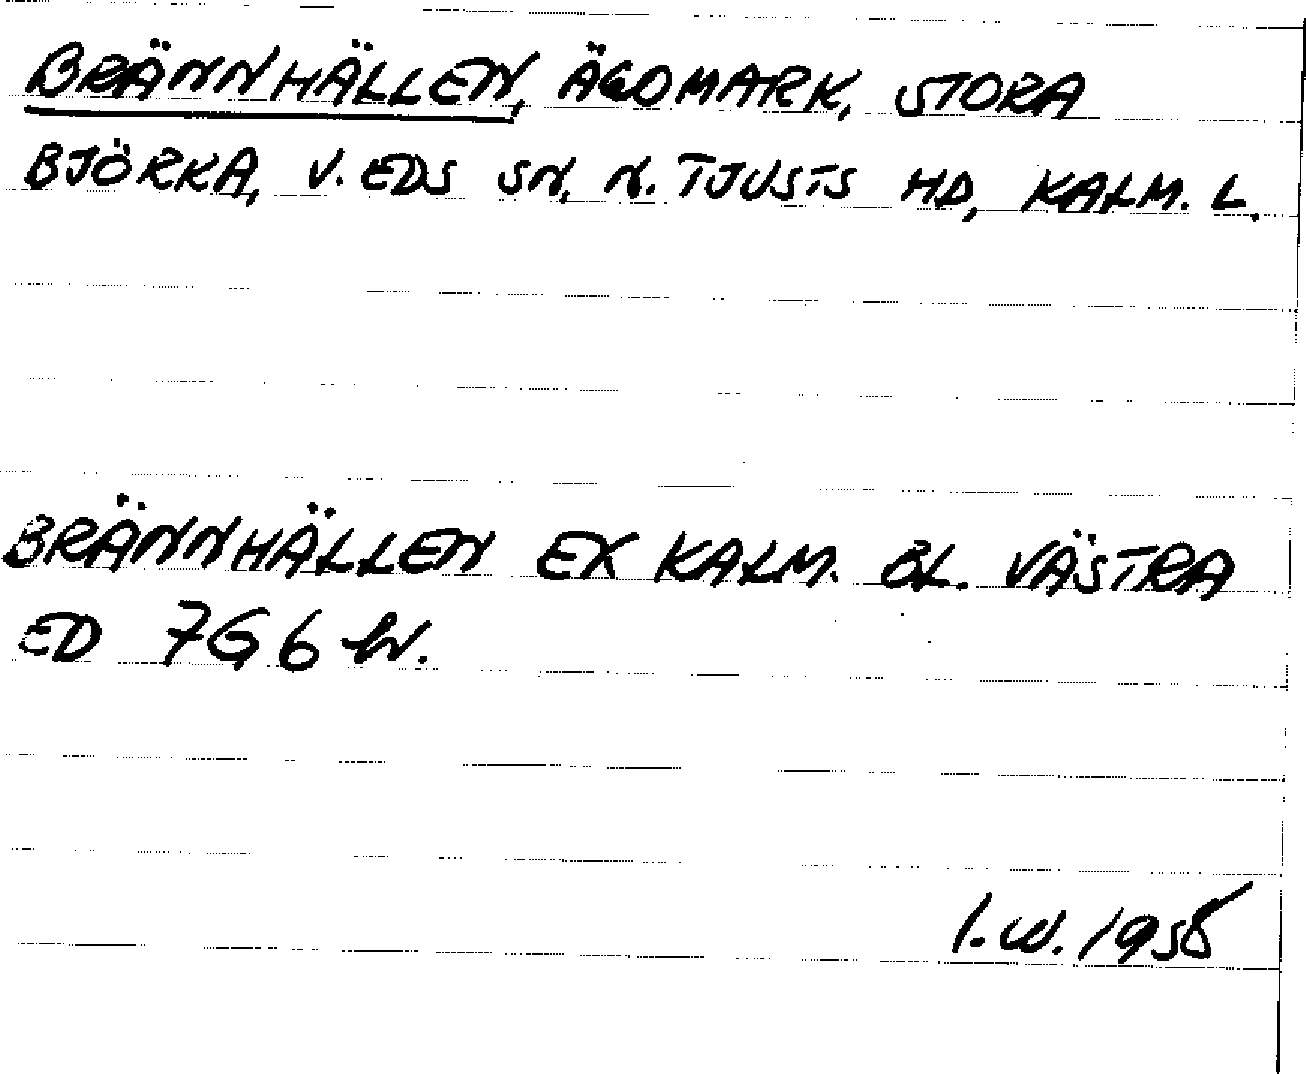 BRÄNNHÄLLEN, ÄGOMARK, STORA
BJÖRKA, V. EDS SN, N. TJUSTS HD, KALM. L.
BRÄNNHÄLLEN EK KALM. BL. VÄSTRA
ED 7G6 
I.W. 1958